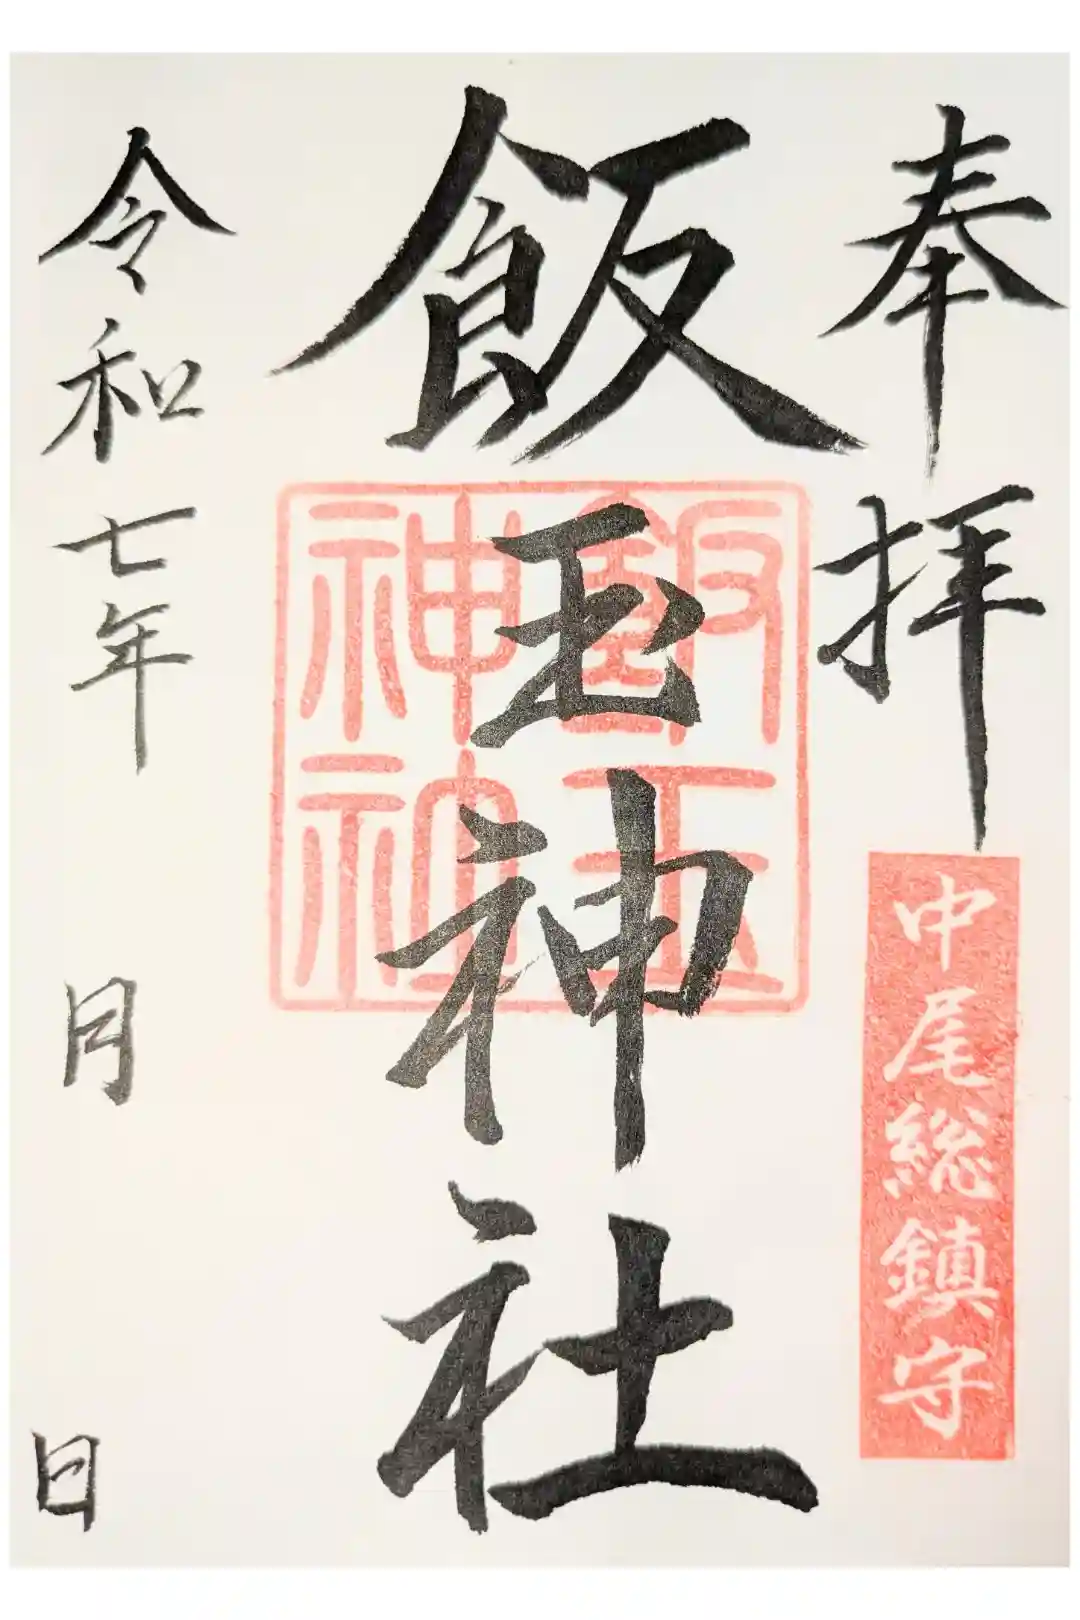 奉拝
中尾総鎮守
飯玉神社
飯玉神社
令和七年 月 日